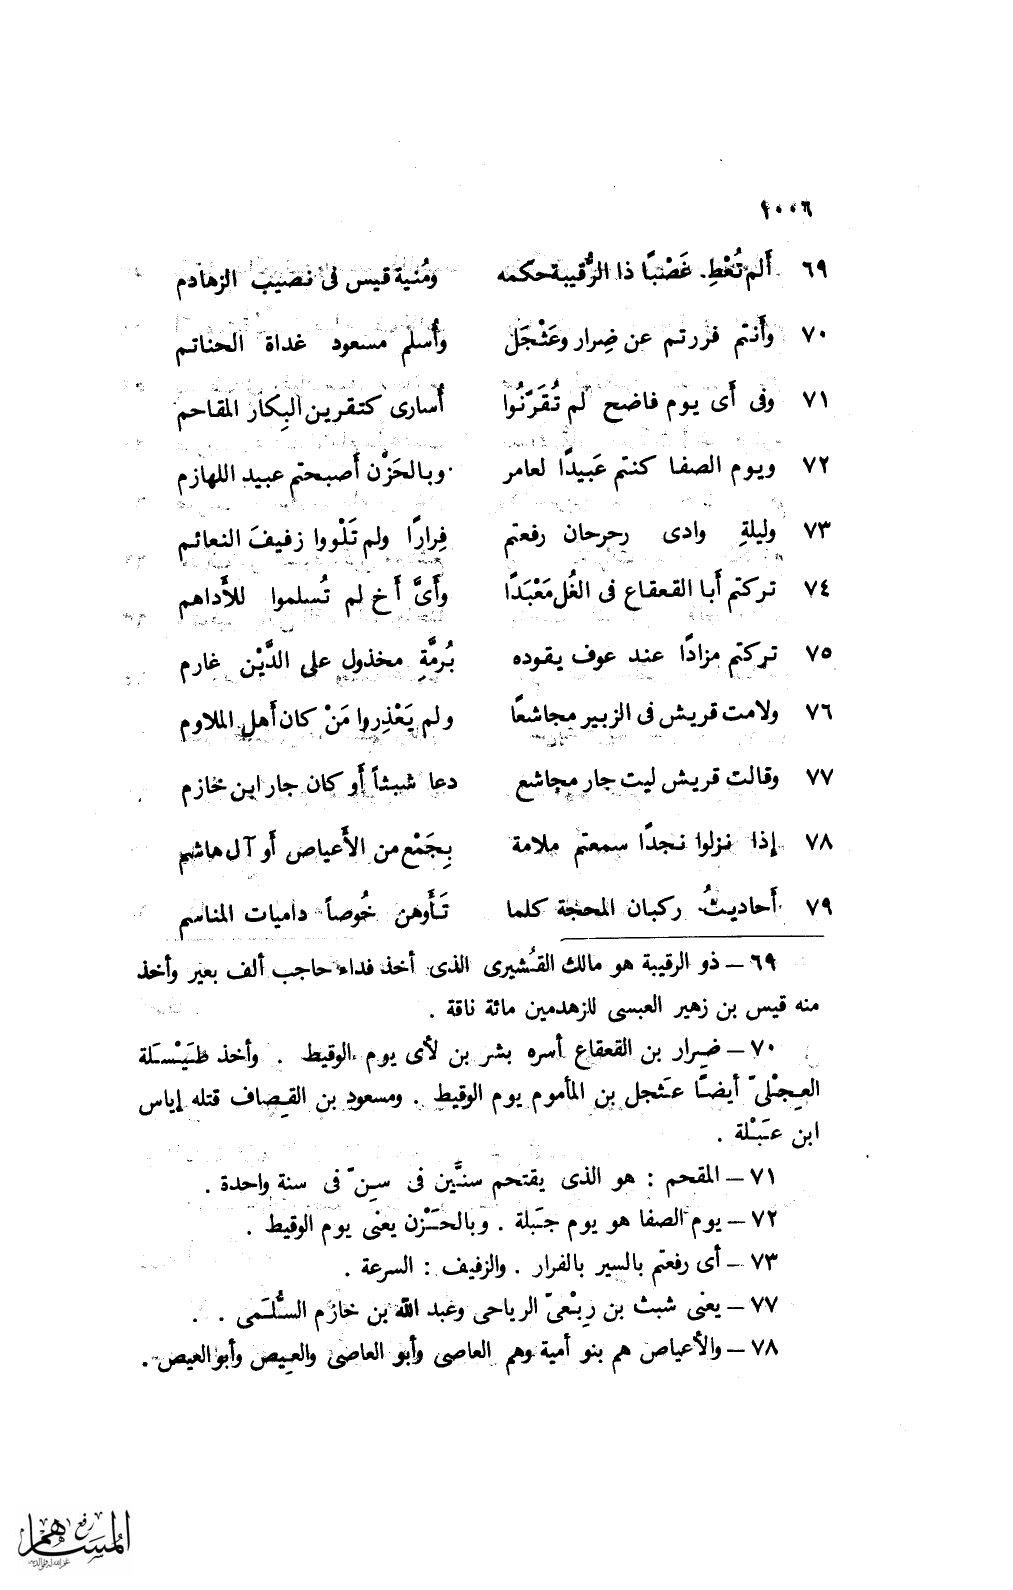 ١٠٠٦
٦٩ أَلم تُعْطِ. غَصْبًا ذا الرُّقيبة حكمه ومُنية قيس فى نصيب الزهادم
٧٠ وأَنتم فررتم عن ضِرار وعَثْجَل وأُسلم مسعود غداة الحناتم
٧١ وفى أَى يوم فاضح لم تُقَرَّنُوا أُسارى كتقرين البِكار المقاحم
٧٢ ويوم الصفا كنتم عَبيدًا لعامر وبالحَزْن أَصبحتم عبيد اللهازم
٧٣ وليلةِ وادى رحرحان رفعتم فِرارًا ولم تَلْووا زفيفَ النعائم
٧٤ تركتم أَبا القعقاع فى الغُل مَعْبَدًا وأَىَّ أَخ لم تُسلموا للأَداهم
٧٥ تركتم مزادًا عند عوف يقوده بُرمَّةِ مخذول على الدَّيْن غارم
٧٦ ولامت قريش فى الزبير مجاشعًا ولم يَعْذِروا مَنْ كان أَهلِ الملاوم
٧٧ وقالت قريش ليت جار مجاشع دعا شبثاً أَو كان جار ابن خازم
٧٨ إذا نزلوا نجدًا سمعتم ملامة بِجَمْع من الأَعياص أَو آل هاشم
٧٩ أَحاديثُ ركبان المحجة كلما تَأَوهن خُوصاً داميات المناسم
٦٩ – ذو الرقيبة هو مالك القُشيرى الذى أخذ فداء حاجب ألف بعير وأخذ
منه قيس بن زهير العبسى للزهدمين مائة ناقة .
٧٠ – ضِرار بن القعقاع أسره بشر بن لأى يوم الوقيط . وأخذ طَيْسَلة
العِجْلىّ أيضًا عَثجل بن المأموم يوم الوقيط . ومسعود بن القِصاف قتله إياس
ابن عَبْلة .
٧١ – المقحم : هو الذى يقتحم سنَّين فى سِنّ فى سنة واحدة .
٧٢ – يوم الصفا هو يوم جَبلة . وبالحَزْن يعنى يوم الوقيط .
٧٣ – أى رفعتم بالسير بالفرار . والزفيف : السرعة .
٧٧ – يعنى شبث بن رِبْعىّ الرياحى وعبد الله بن خازم السُّلَمى .
٧٨ – والأعياص هم بنو أمية وهم العاصى وأبو العاصى والعِيص وأبو العيص .
رفع
المساهم